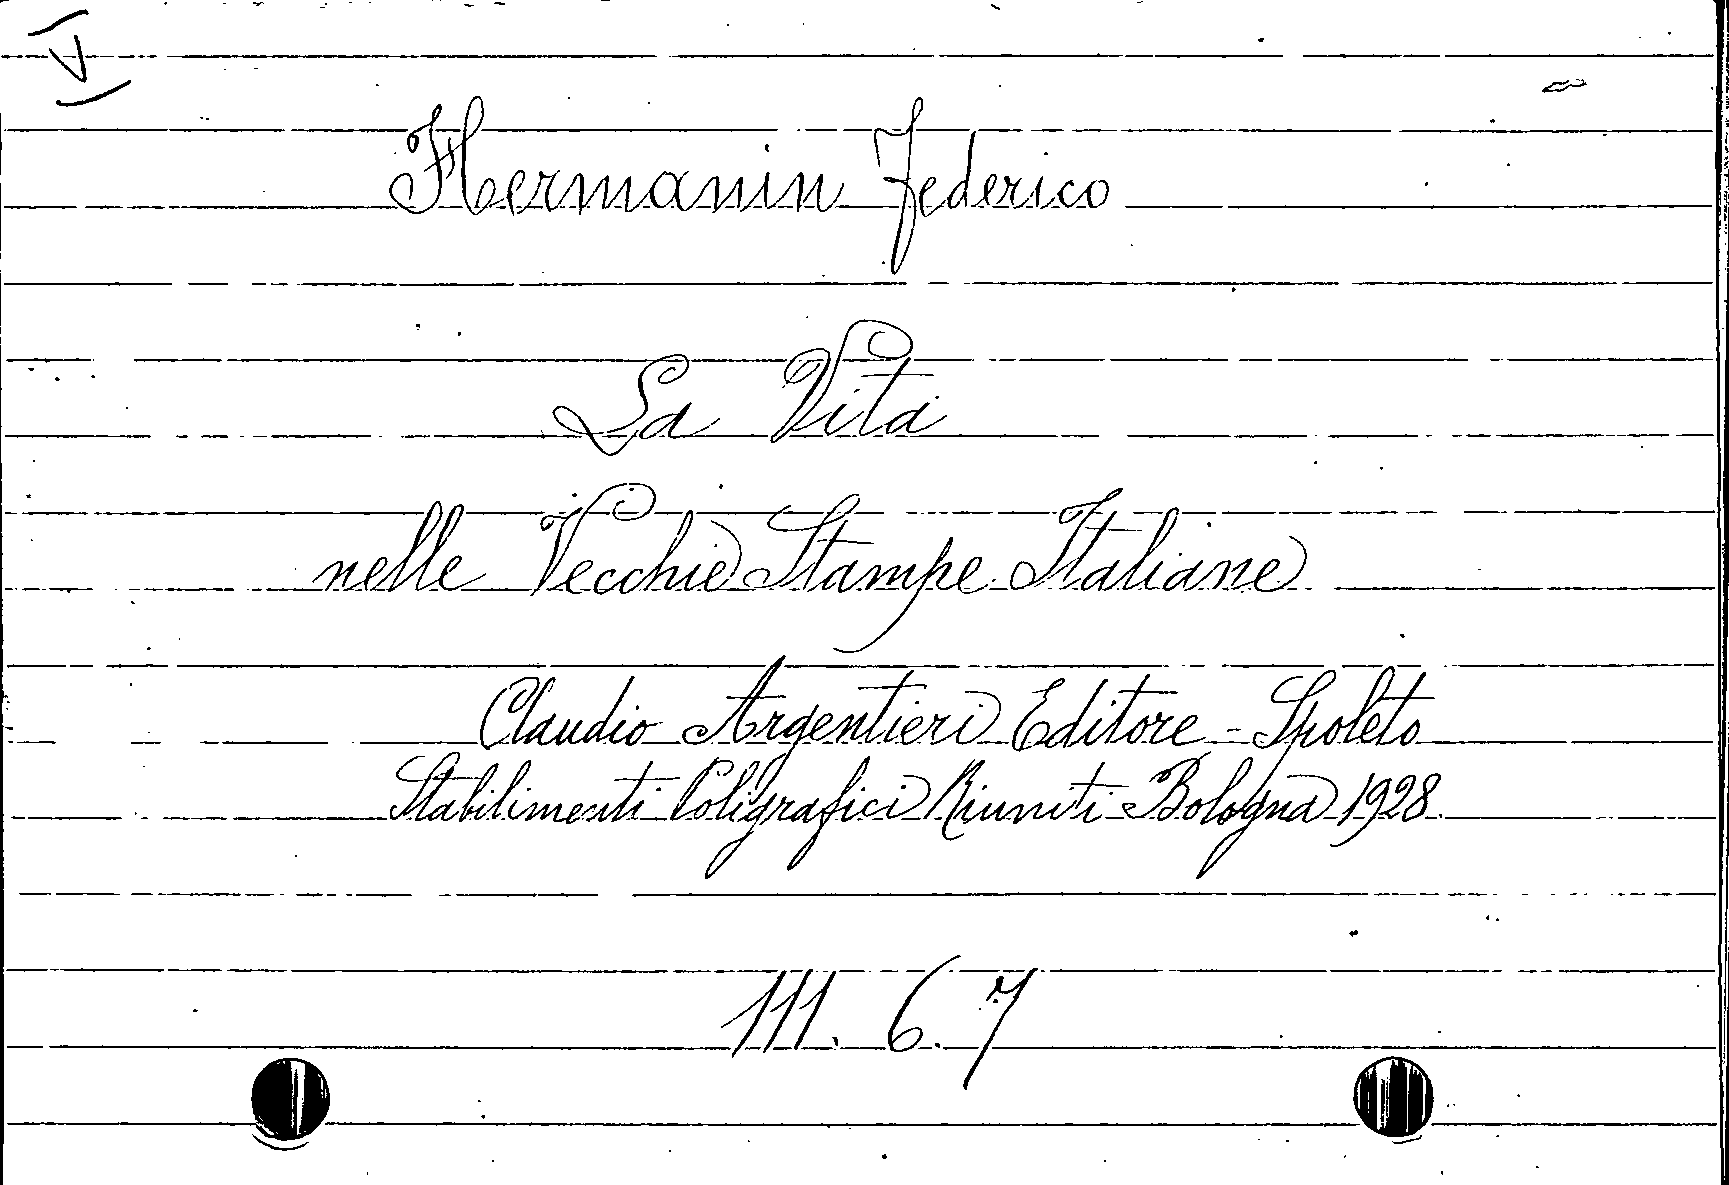 V
Hermanin Federico
La Vita
nelle Vecchie Stampe Italiane
Claudio Argentieri Editore - Spoleto
Stabilimenti Poligrafici Riuniti - Bologna 1928.
111. 6. 7